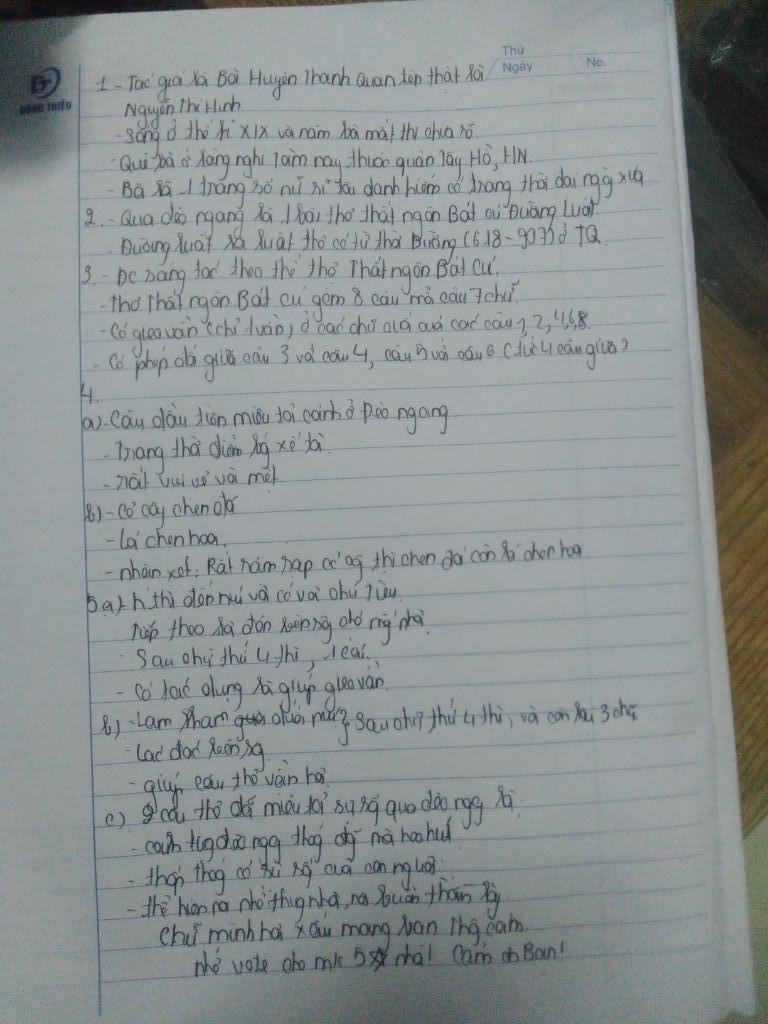 ĐÔNG TRIỀU
Thứ
Ngày
No.
1 - Tác giả là Bà Huyện Thanh Quan tên thật là
Nguyễn Thị Hinh
- Sống ở thế kỉ XIX và năm bà mất thì chưa rõ.
- Quê bà ở làng nghi Tàm nay thuộc quận Tây Hồ, HN.
- Bà là 1 trong số nữ sĩ tài danh hiếm có trong thời đại ngày xưa
2. - Qua đèo ngang là 1 bài thơ thất ngôn Bát cú Đường Luật
Đường luật là luật thơ có từ thời Đường (618-907) ở TQ
3 - Đc sáng tác theo thể thơ Thất ngôn Bát Cú.
- Thơ Thất ngôn Bát cú gồm 8 câu mỗi câu 7 chữ.
- Có gieo vần (chỉ 1 vần) ở các chữ cuối của các câu 1, 2, 4, 6, 8
- Có phép đối giữa câu 3 và câu 4, câu 5 với câu 6 (tức 4 câu giữa)
4.
a) - Câu đầu tiên miêu tả cảnh ở Đèo ngang.
- Trong thời điểm bóng xế tà
- rất vui vẻ và mệt
b) - Cỏ cây chen đá
- Lá chen hoa.
- nhận xét: Rất rậm rạp cỏ thì chen đá còn lá chen hoa
5 a) thì đến núi và có vài chú tiều.
Tiếp theo là đến bên sông chợ mấy nhà.
Sau chữ thứ 4 thì,
- Có tác dụng là giúp gieo vần.
b) - Lom khom dưới núi } Sau chữ thứ 4 thì, và còn lại 3 chữ
- Lác đác bên sông
- giúp câu thơ vần hơn
c) 2 câu thơ đã miêu tả sự sống qua đèo ngang là:
- cảnh tượng đèo ngang thoáng đãng mà heo hút
- thấp thoáng có sự sống của con người.
- thể hiện ra nhớ thương nhà, nỗi buồn thầm lặng
Chữ mình hơi xấu mong bạn thông cảm
nhớ vote cho mk 5☆ nha! Cảm ơn Bạn!